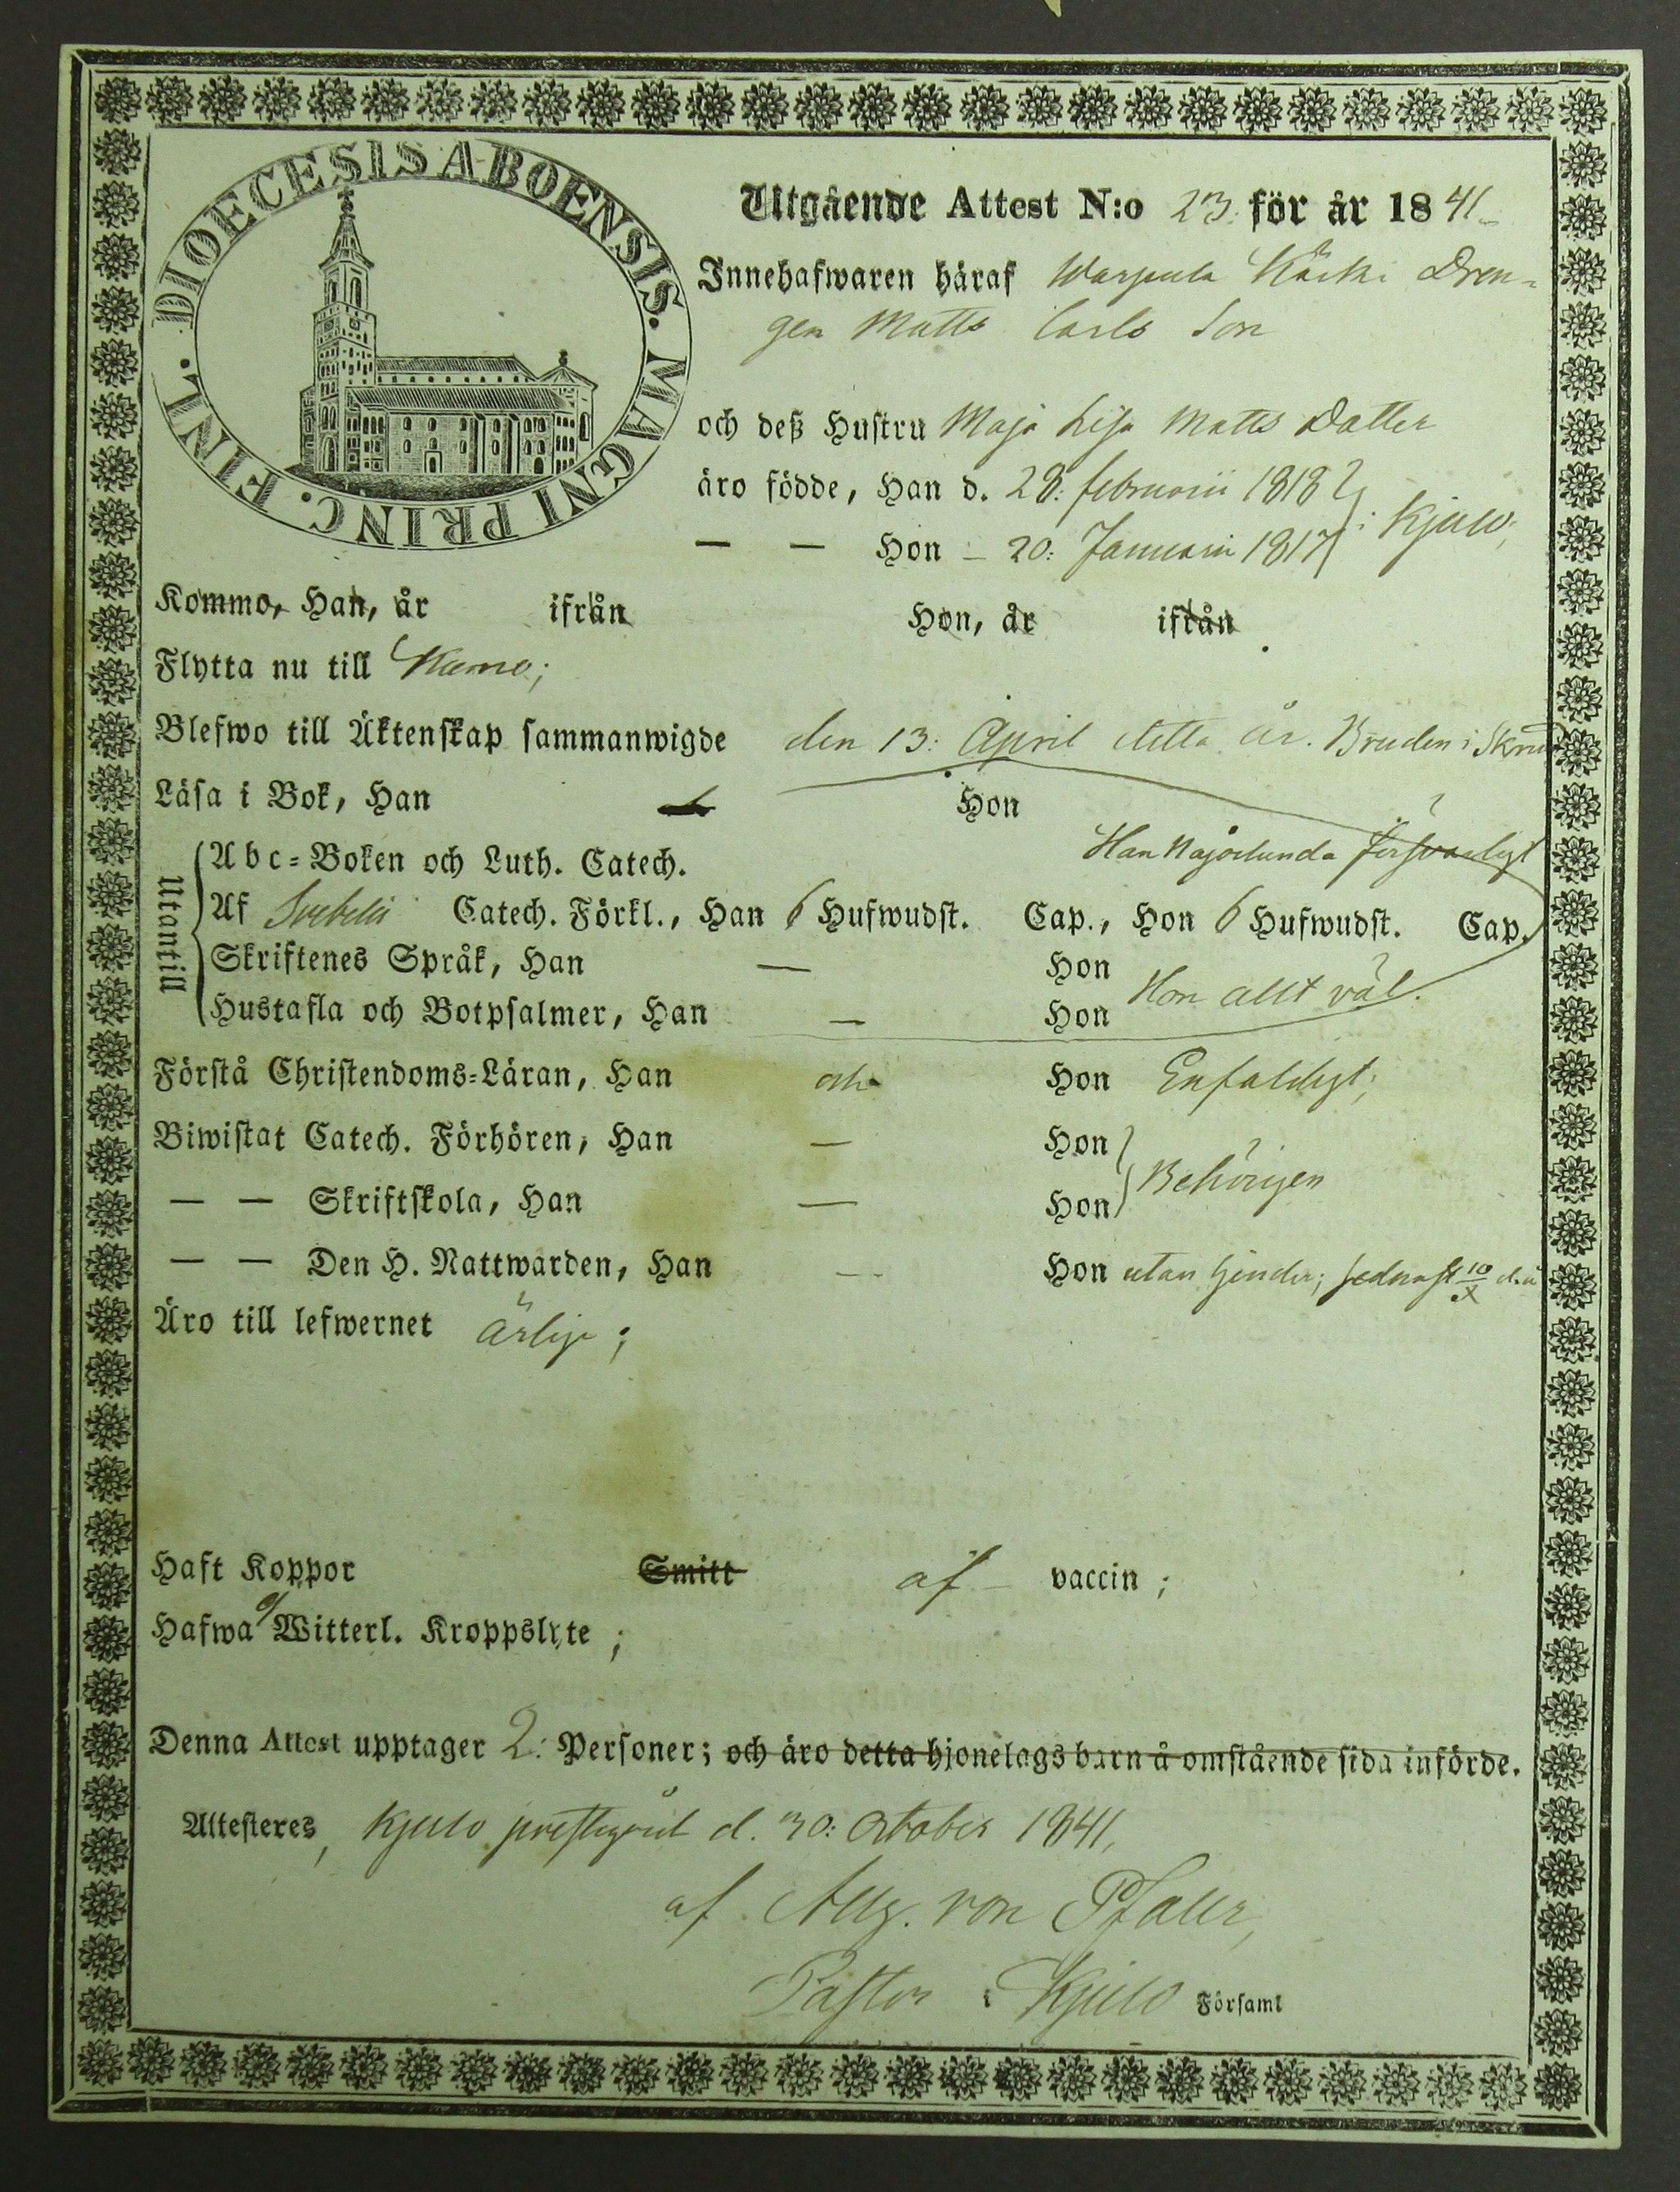 DIOECESIS ABOENSIS. MAGNI PRINC. FINL.
Utgående Attest N:o 23. för år 1841
Innehafwaren häraf Warpula Kärki Dren-
gen Matts Carls Son
och deß Hustru Maja Lisa Matts Dotter
äro födde, Han d. 28: februarii 1818
— — Hon — 20: Januarii 1817 i Kjulo;
Kommo, Han, år ifrån Hon, år ifrån
Flytta nu till Kumo;
Blefwo till Äktenskap sammanwigde den 13: April detta år. Bruden i Skrud
Läsa i Bok, Han Hon
Utantill
Abc-Boken och Luth. Catech. Han Någorlunda försvarligt
Af Svebelii Catech. Förkl., Han 6 Hufwudst. Cap., Hon 6 Hufwudst. Cap.
Skriftenes Språk, Han — Hon
Hustafla och Botpsalmer, Han — Hon Hon allt väl.
Förstå Christendoms-Läran, Han och Hon Enfaldigt;
Biwistat Catech. Förhören, Han — Hon
— — Skriftskola, Han — Hon Behörigen
— — Den H. Nattwarden, Han — Hon utan hinder; sednast 10/X d.å
Äro till lefwernet ärlige;
Haft Koppor Smitt af vaccin;
Hafwa ej Witterl. Kroppslyte;
Denna Attest upptager 2: Personer; och äro detta hjonelags barn å omstående sida införde.
Attesteres, Kjulo prestegård d. 30: October 1841,
af Aug. von Pfaler,
Pastor i Kjulo Församl